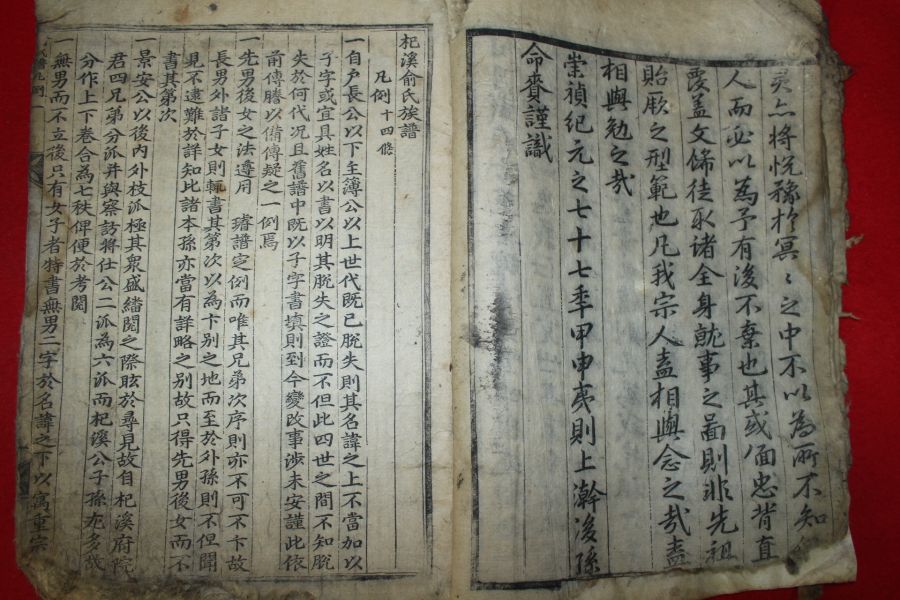 灵亦将悅豫於冥〻之中不以為所不知
人而必以為予有後不棄也其或面忠背直
覆盖文餙徒取诸全身就事之啚則非先祖
貽厥之型範也凡我宗人盍相與念之哉盍
相與勉之哉
崇禎紀元之七十七季甲申夷則上澣後孫
命賚謹識
杞溪俞氏族譜
凡例十四條
一自戶長公以下主簿公以上世代既已脫失則其名諱之上不當加以
子字或宜具姓名以書以明其脫失之證而不但此四世之間不知脫
失於何代况且舊譜中既以子字書填則到今變改事涉未安謹此依
前傳謄以備傳疑之一例焉
一先男後女之法遵用 璿譜定例而唯其兄弟次序則亦不可不卞故
長男外諸子女則輒書其第次以為卞别之地而至於外孫則不但聞
見不逮難於詳知比諸本孫亦當有詳略之别故只得先男後女而不
書其第次
一景安公以後內外枝派極其衆盛繙閱之際眩於尋見故自杞溪府院
君四兄弟分派并與察訪將仕公二派為六派而杞溪公子孫尤多故
分作上下卷合為七秩俾便於考閱
一無男而不立後只有女子者特書無男二字於名諱之下以寓重宗